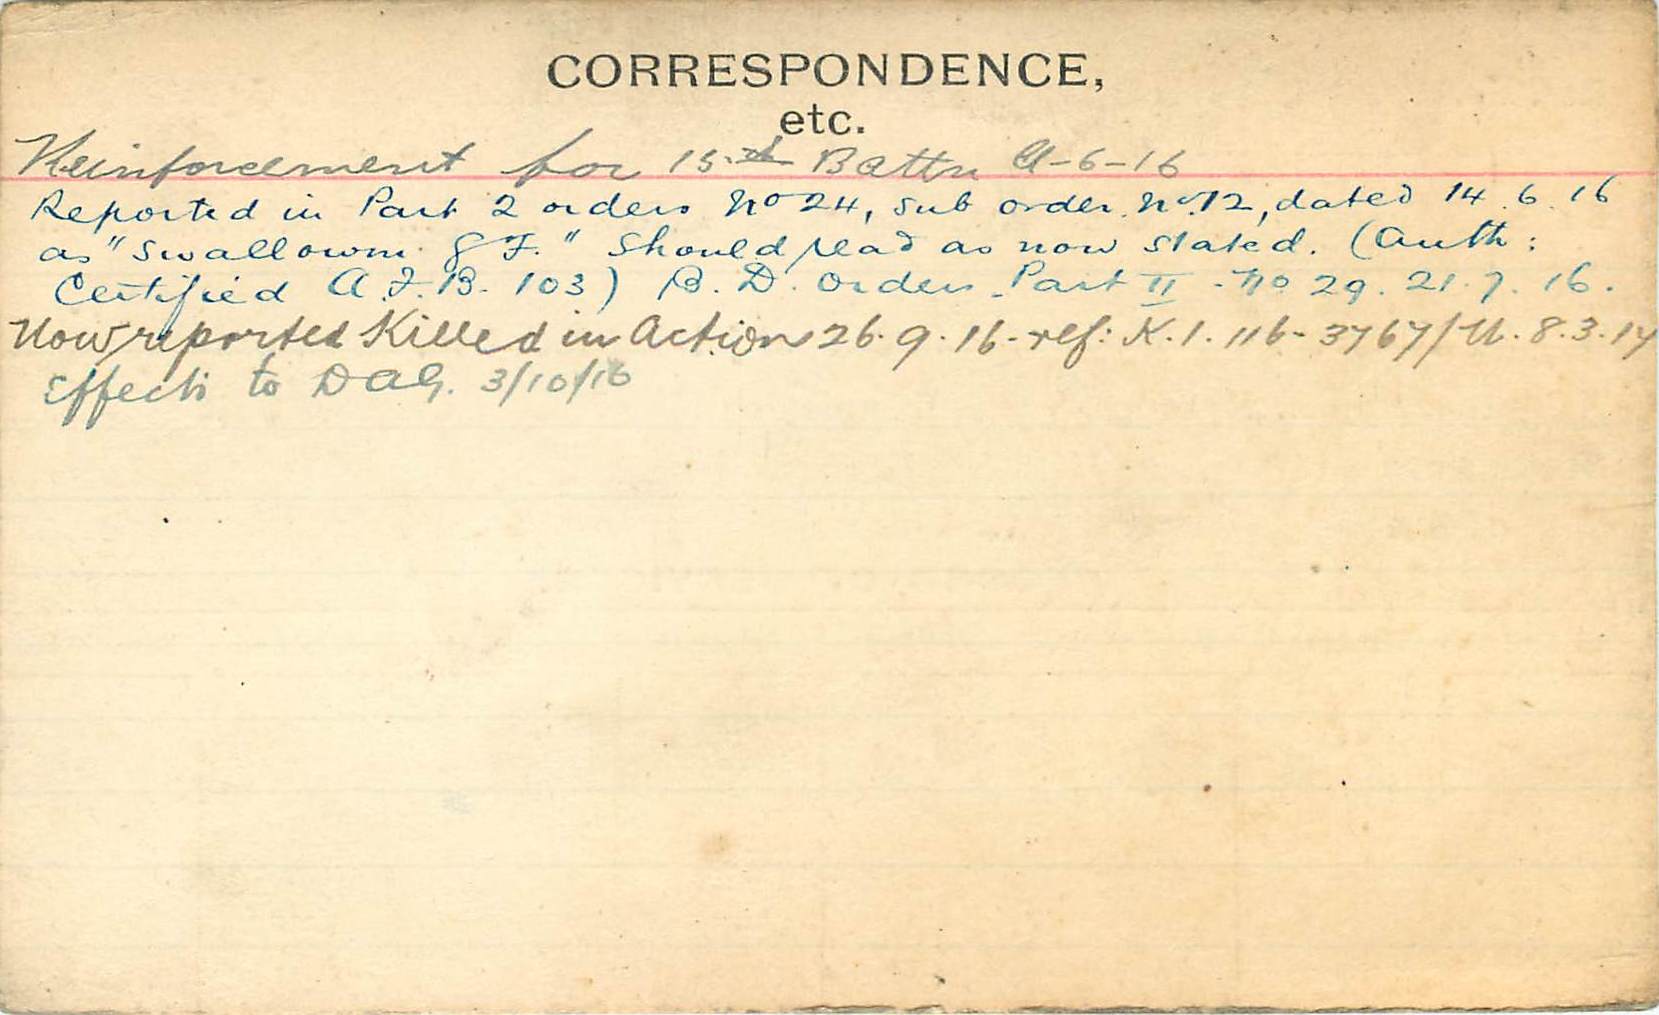 CORRESPONDENCE,
etc.
Reinforcement for 15th Battn -6-16
Reported in Part 2 orders No 24, sub order No.12, dated 14.6.16
as "Swallowm G F." should read as now stated. (Auth:
Certified A.F.B. 103) B.D. Orders Part II - No 29. 21.7.16.
Now reported Killed in Action 26.9.16 - ref: K.1.116 - 3767/ 8.3.17
Effects to DAG. 3/10/16